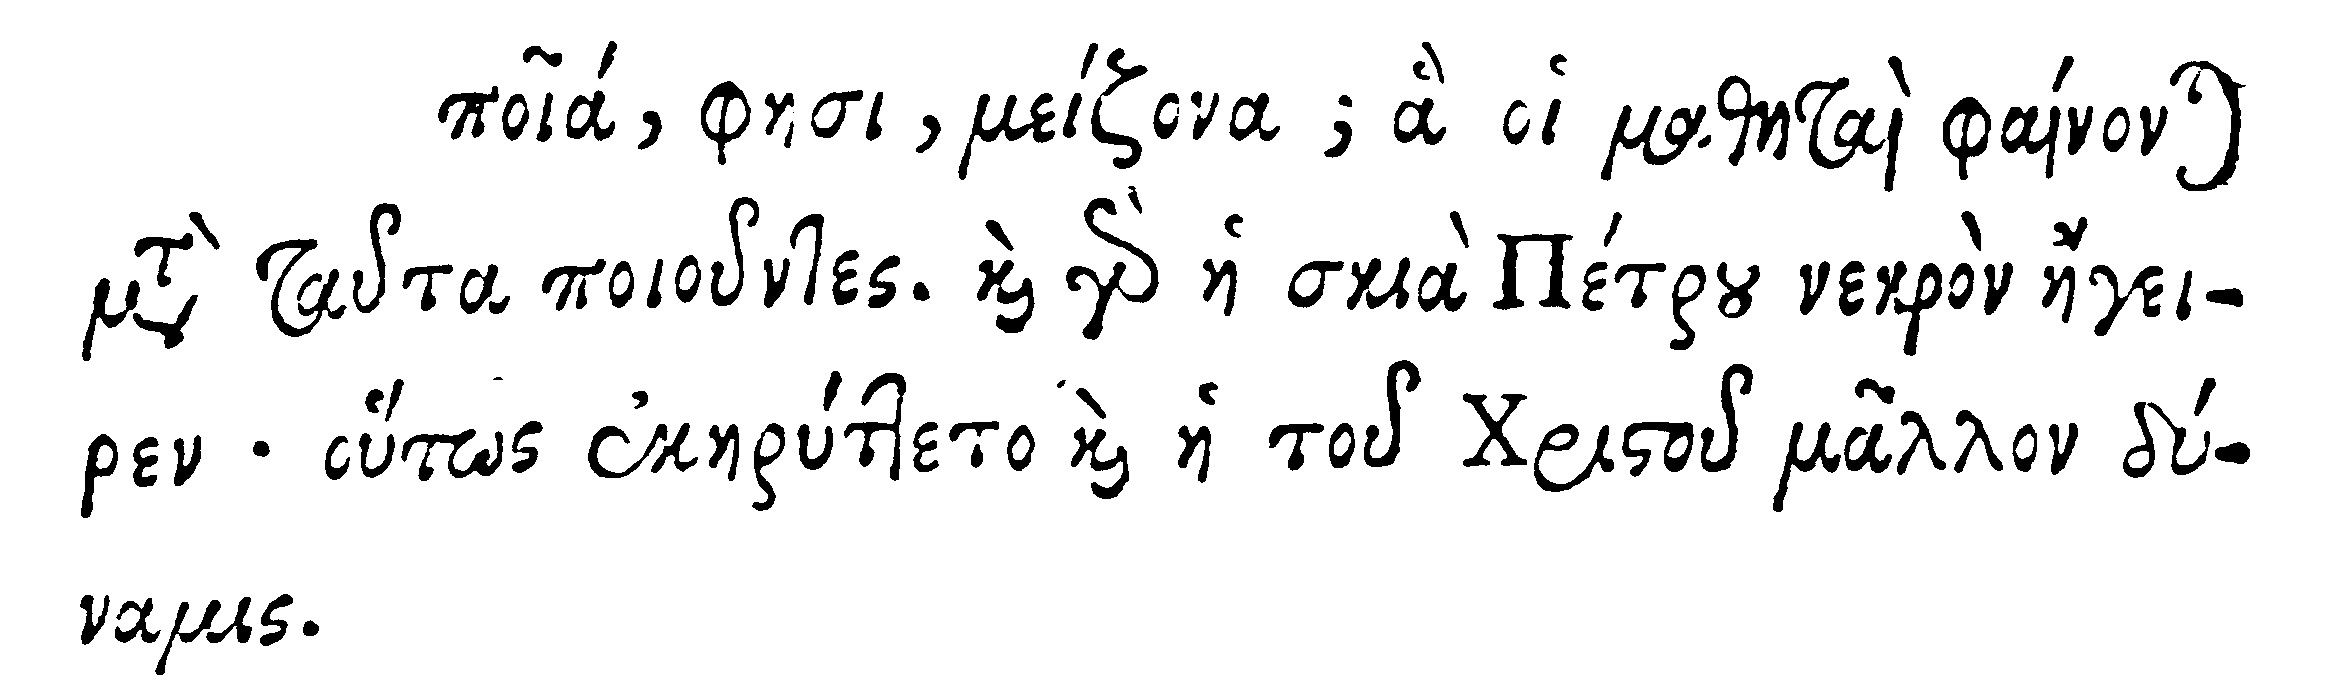 ποῖά, φησι, μείζονα; ἃ οἱ μαθηταὶ φαίνονται
μετὰ ταῦτα ποιοῦντες. καὶ γὰρ ἡ σκιὰ Πέτρου νεκρὸν ἤγει-
ρεν · οὕτως ἐκηρύττετο καὶ ἡ τοῦ Χριστοῦ μᾶλλον δύ-
ναμις.